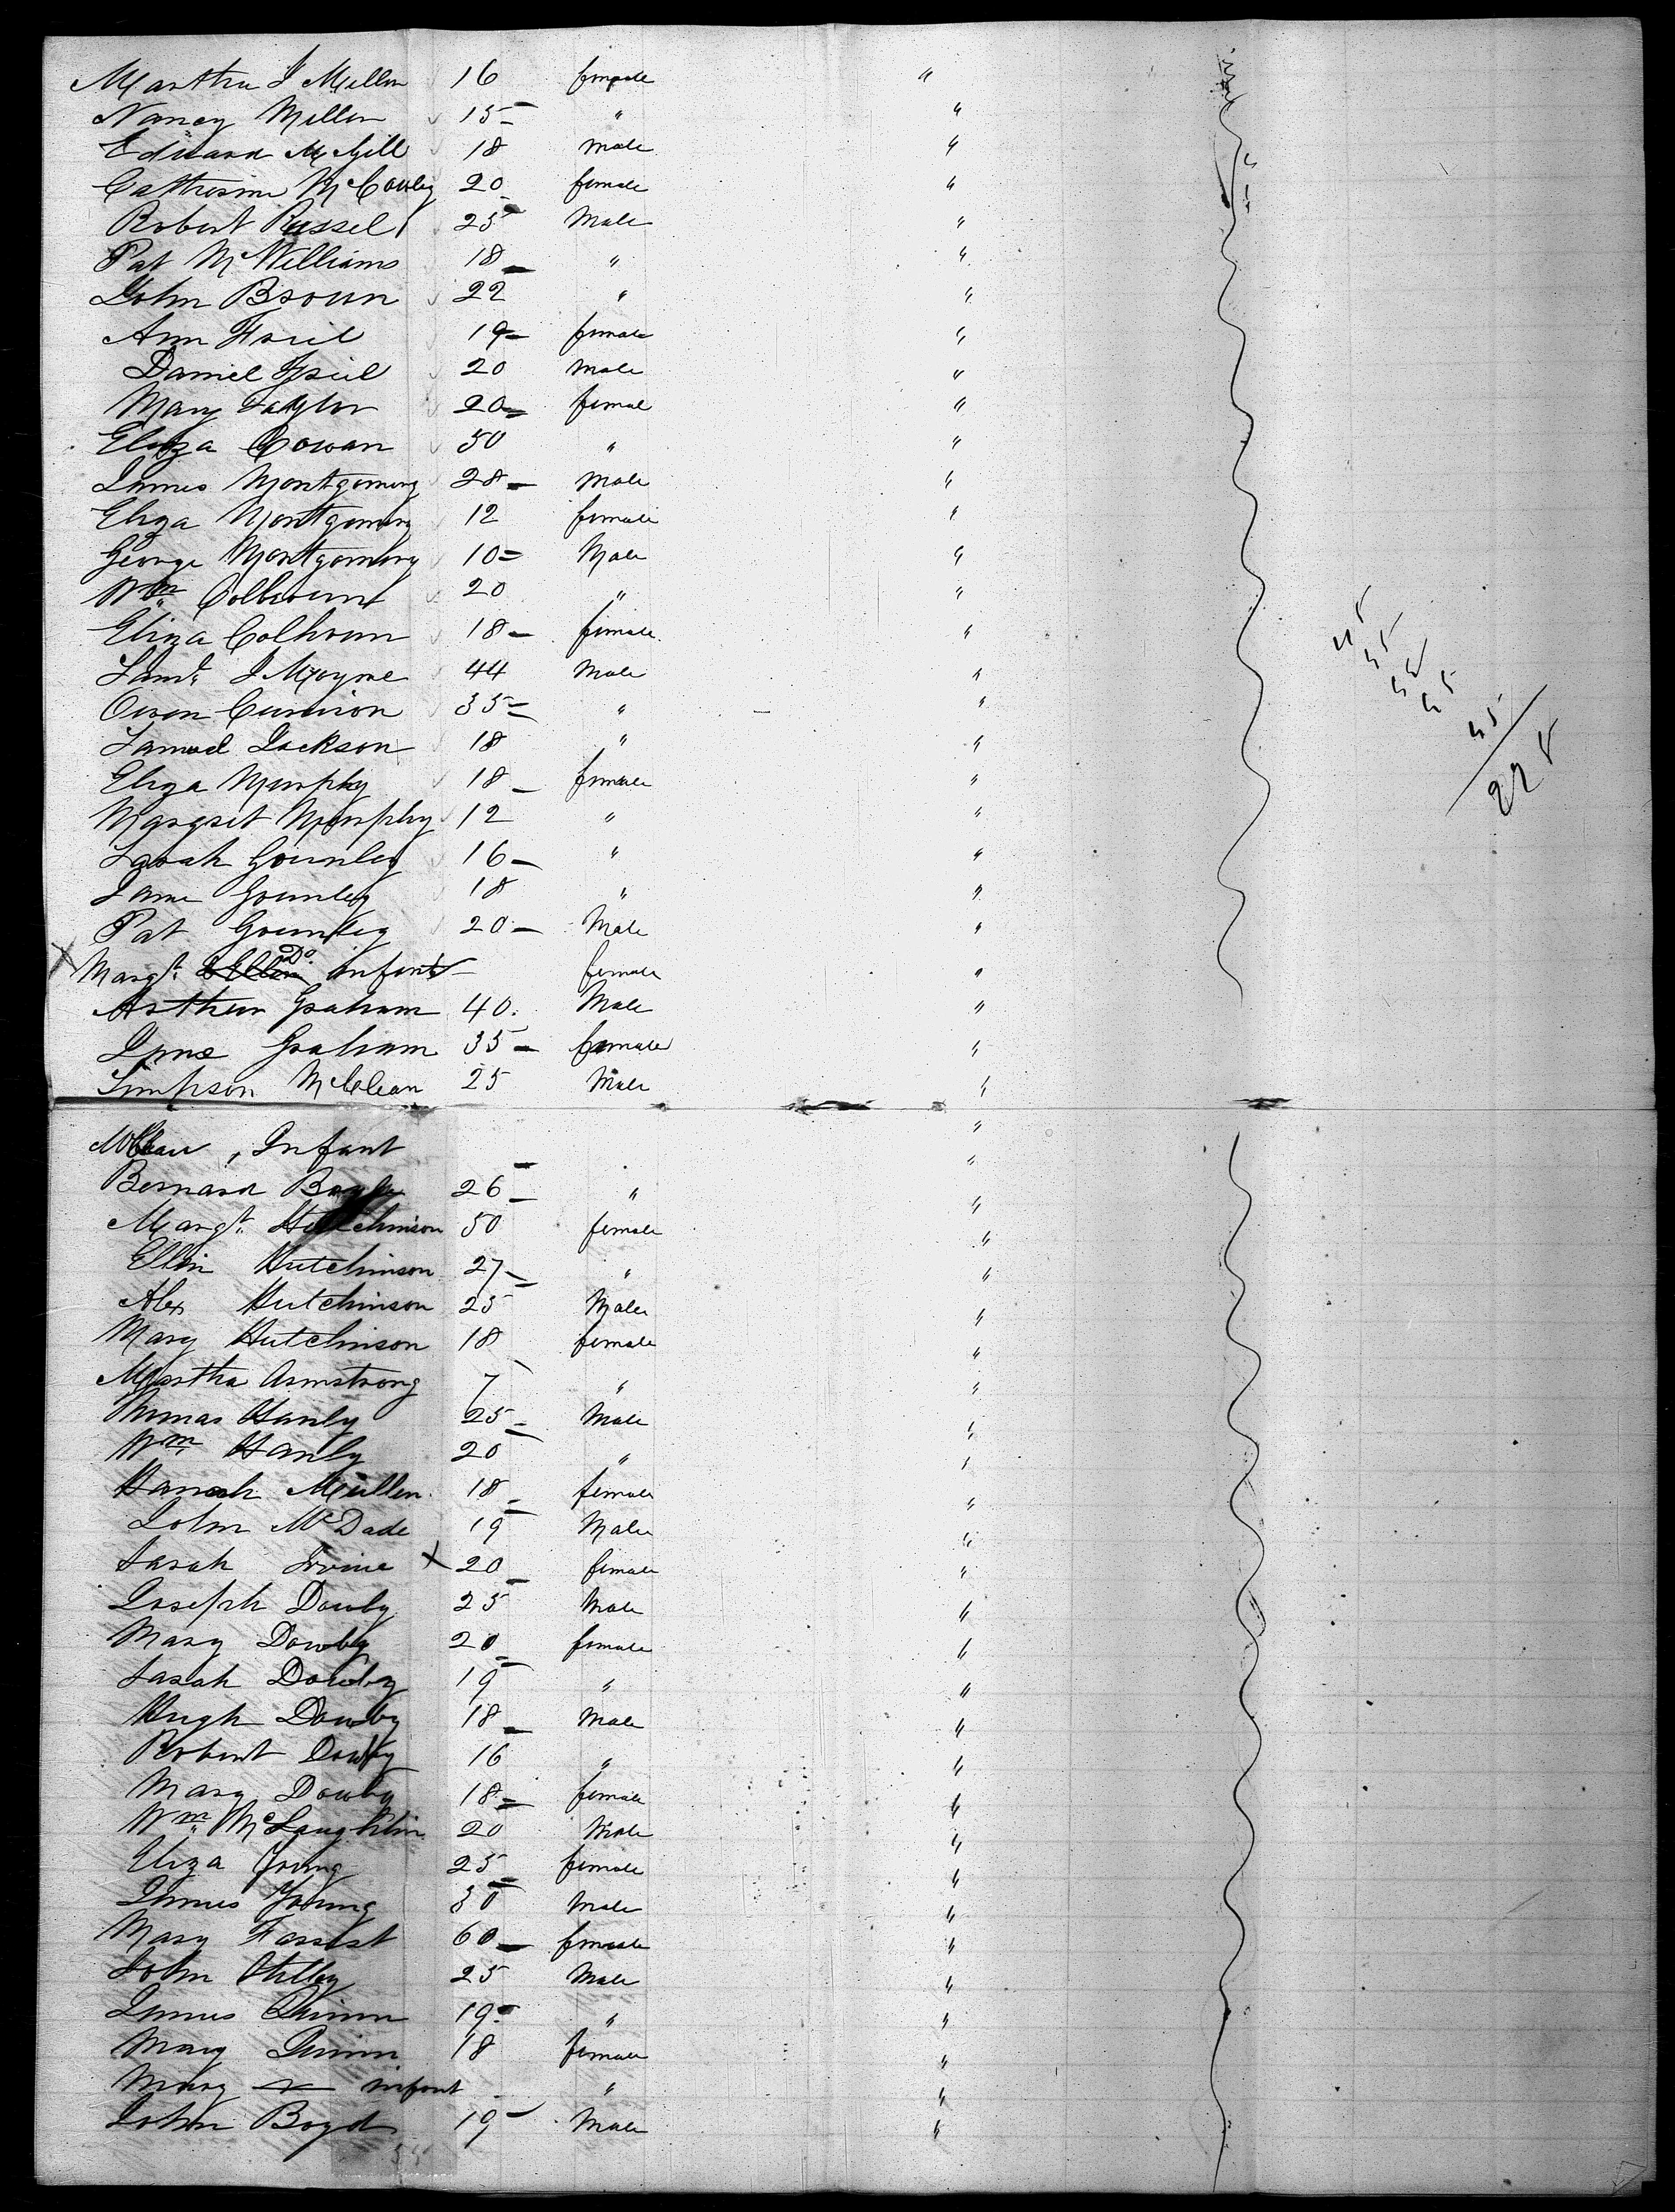 Martha J Millen 16 female "
Nancy Millen 15 " "
Edward McGill 18 Male "
Catherine McCauley 20 female "
Robert Russel 25 Male "
Pat McWilliams 18 " "
John Broun 22 " "
Ann Friel 19 female "
Daniel Friel 20 Male "
Mary Taylor 20 femal "
Eliza Cowan 50 " "
James Montgomery 28 Male "
Eliza Montgomery 12 female "
George Montgomery 10 Male "
Wm Colhoun 20 " "
Eliza Colhoun 18 female "
Saml J Moyne 44 Male "
Owen 35 " "
Samuel Jackson 18 " "
Eliza Murphy 18 female "
Margret Murphy 12 " "
Sarah Gourley 16 " "
Jane Gourley 18 " "
Pat Gourley 20 Male "
X Margt. Do infant female "
Arthur Graham 40 Male "
Jane Graham 35 female "
Simpson McClean 25 Male "
McClean, Infant " "
Bernard Boyle 26 " "
Margt. Hutchinson 50 female "
Ellin Hutchinson 27 " "
Alex Hutchinson 25 Male "
Mary Hutchinson 18 female "
Martha Armstrong 7 " "
Thomas Hanly 25 Male "
Wm Hanly 20 " "
Hannah Mullen 18 female "
John McDade 19 Male "
Sarah Irvine X 20 female "
Joseph Dowby 25 Male "
Mary Dowby 20 female "
Sarah Dowby 19 " "
Hugh Dowby 18 Male "
Robert Dowby 16 " "
Mary Dowby 18 female "
Wm McLaughlin 20 Male "
Eliza Young 25 female "
James Young 30 Male "
Mary Forrest 60 female "
John 25 Male "
James Quinn 19 " "
Mary Quinn 18 female "
Mary infant " "
John Boyd 19 Male "
45
45
45
45
45
225